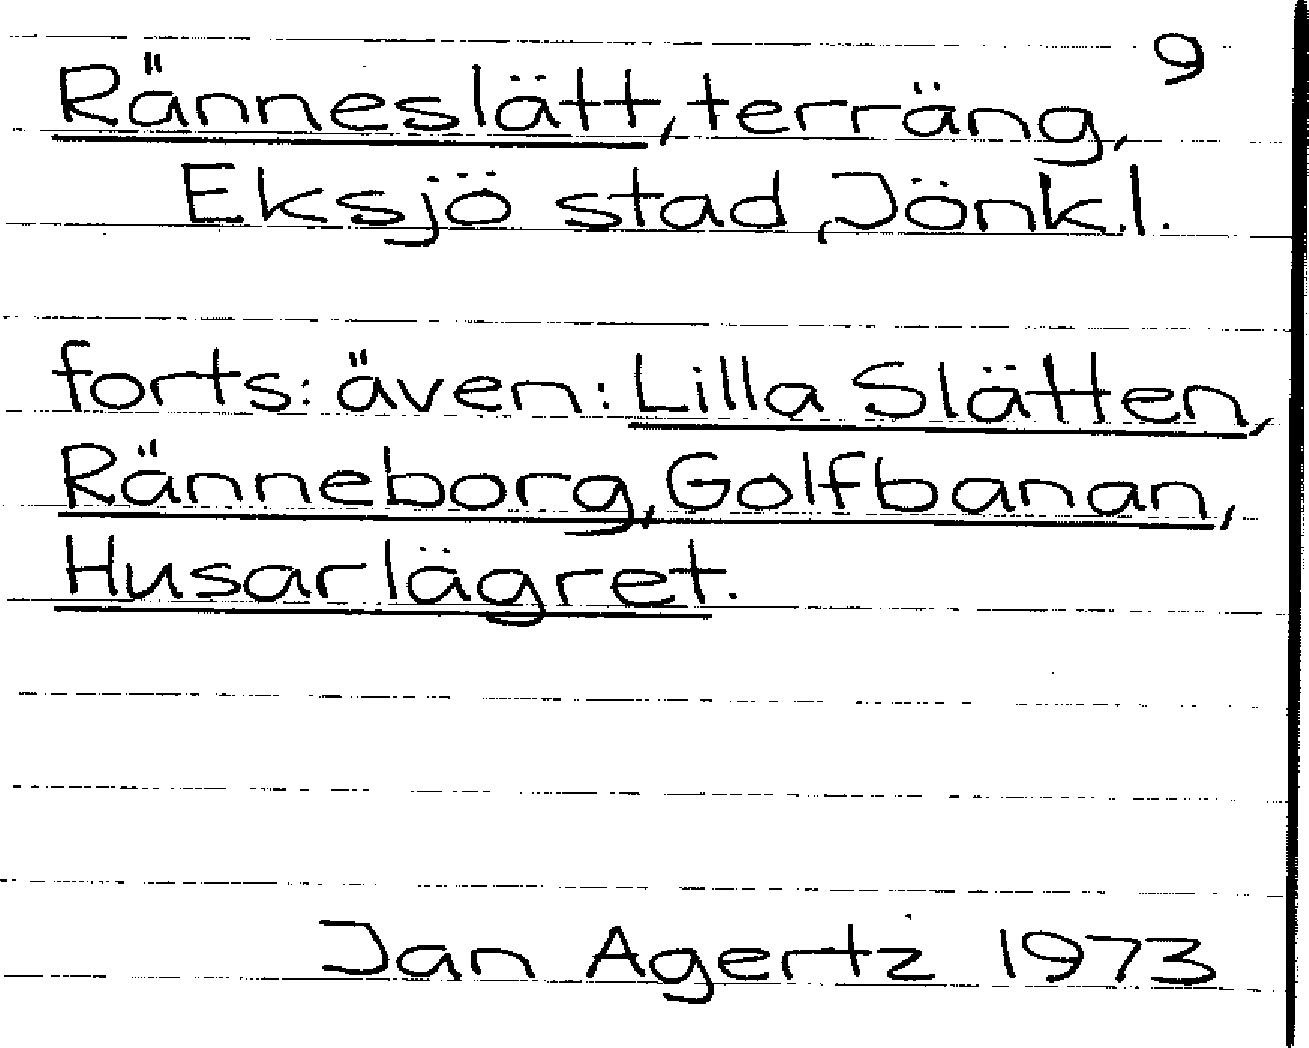 9
Ränneslätt, terräng,
Eksjö stad, Jönk.l.
forts: även: Lilla Slätten,
Ränneborg, Golfbanan,
Husarlägret.
Jan Agertz 1973